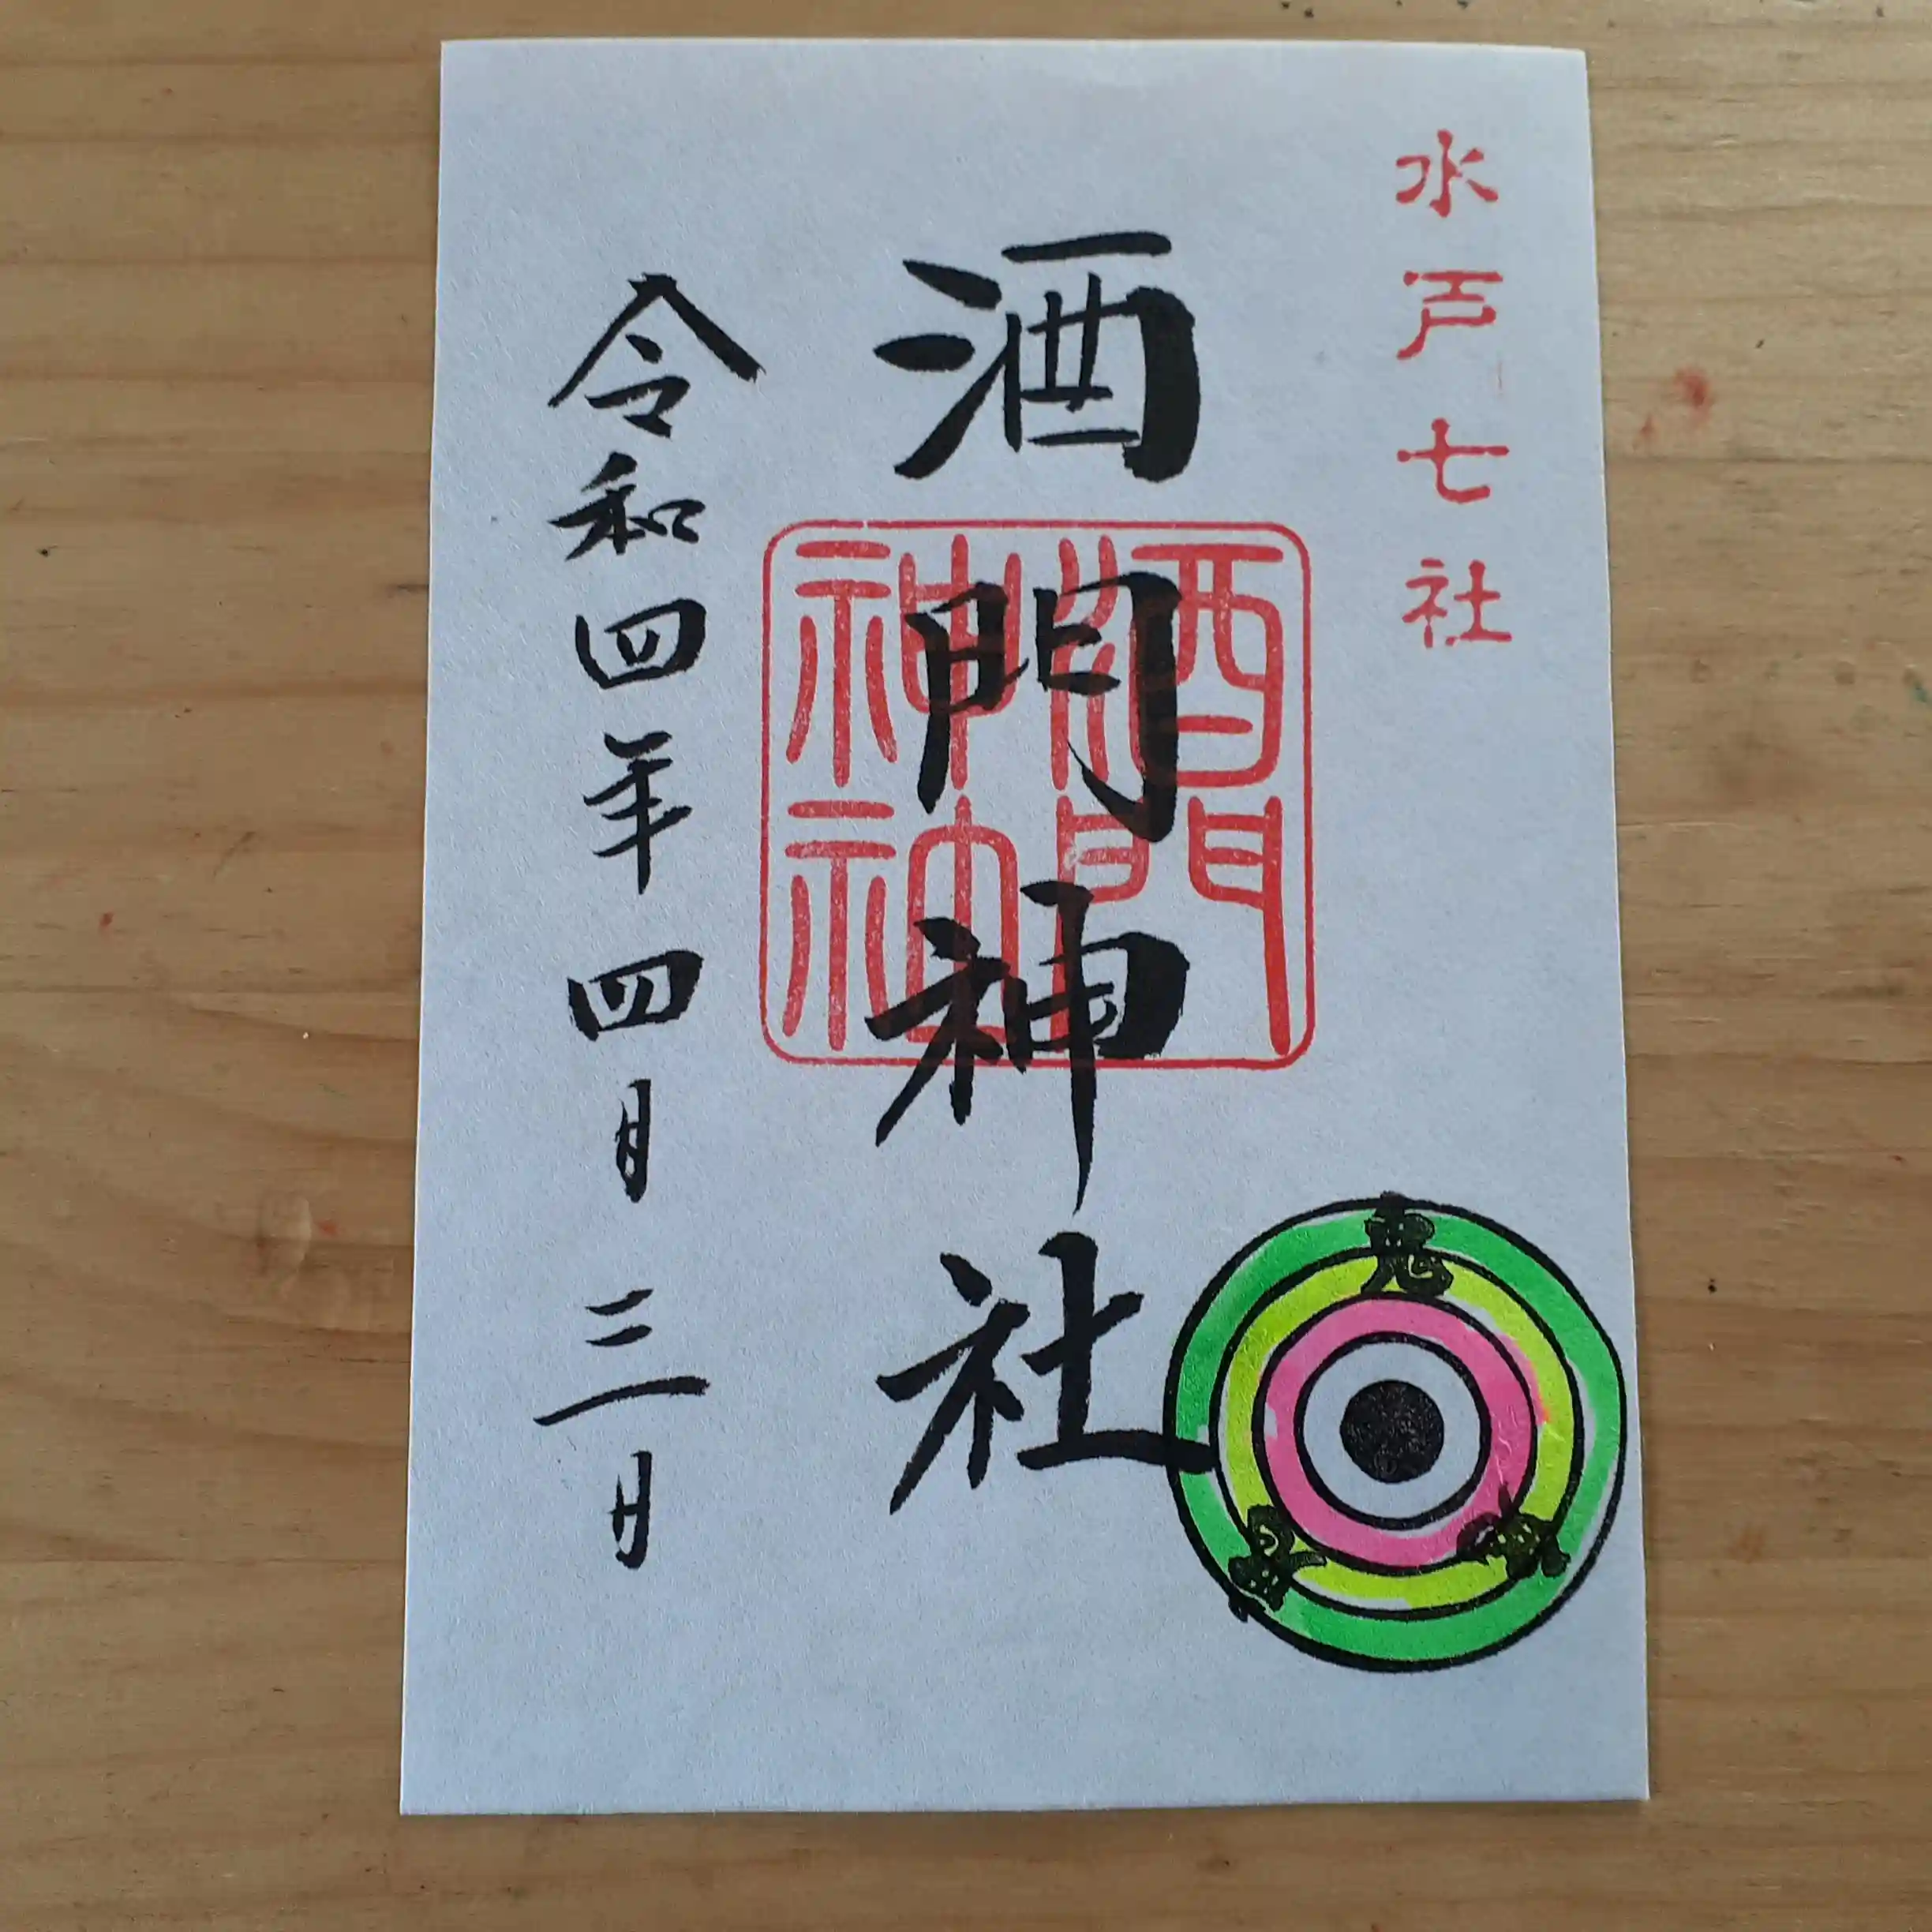 水戸七社
酒門神社
酒門神社
令和四年四月三日
鬼
鬼
鬼